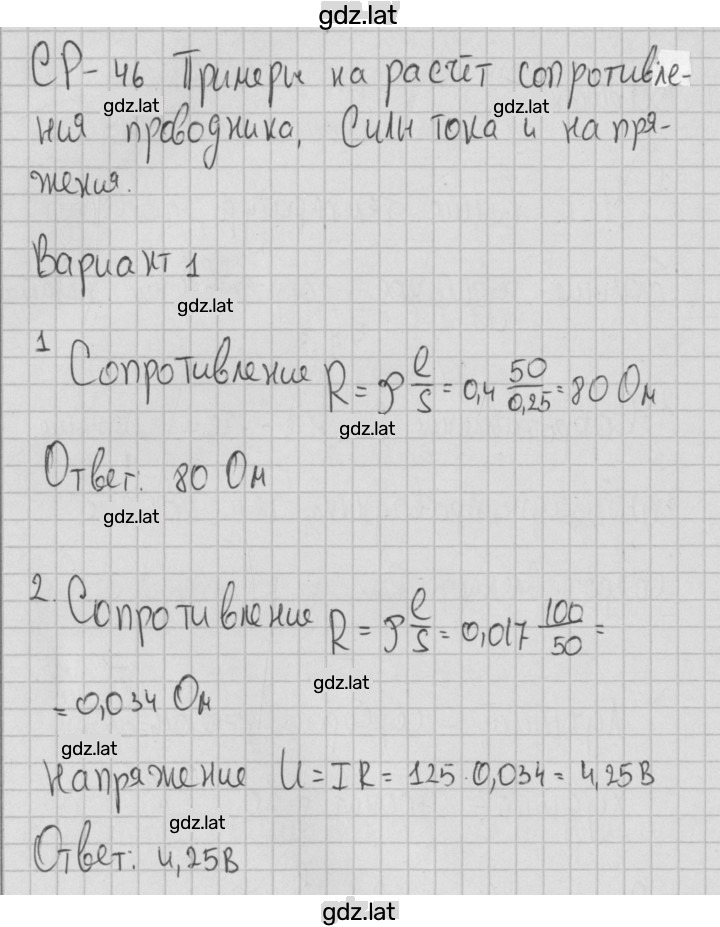 gdz.lat
СР-46 Примеры на расчёт сопротивле-
gdz.lat gdz.lat
ния проводника, силы тока и напря-
жения.
Вариант 1
gdz.lat
1 Сопротивление R = ρ l/S = 0,4 50/0,25 = 80 Ом
gdz.lat
Ответ: 80 Ом
gdz.lat
2. Сопротивление R = ρ l/S = 0,017 100/50 =
gdz.lat
= 0,034 Ом
gdz.lat
Напряжение U = IR = 125 · 0,034 = 4,25В
gdz.lat
Ответ: 4,25В
gdz.lat